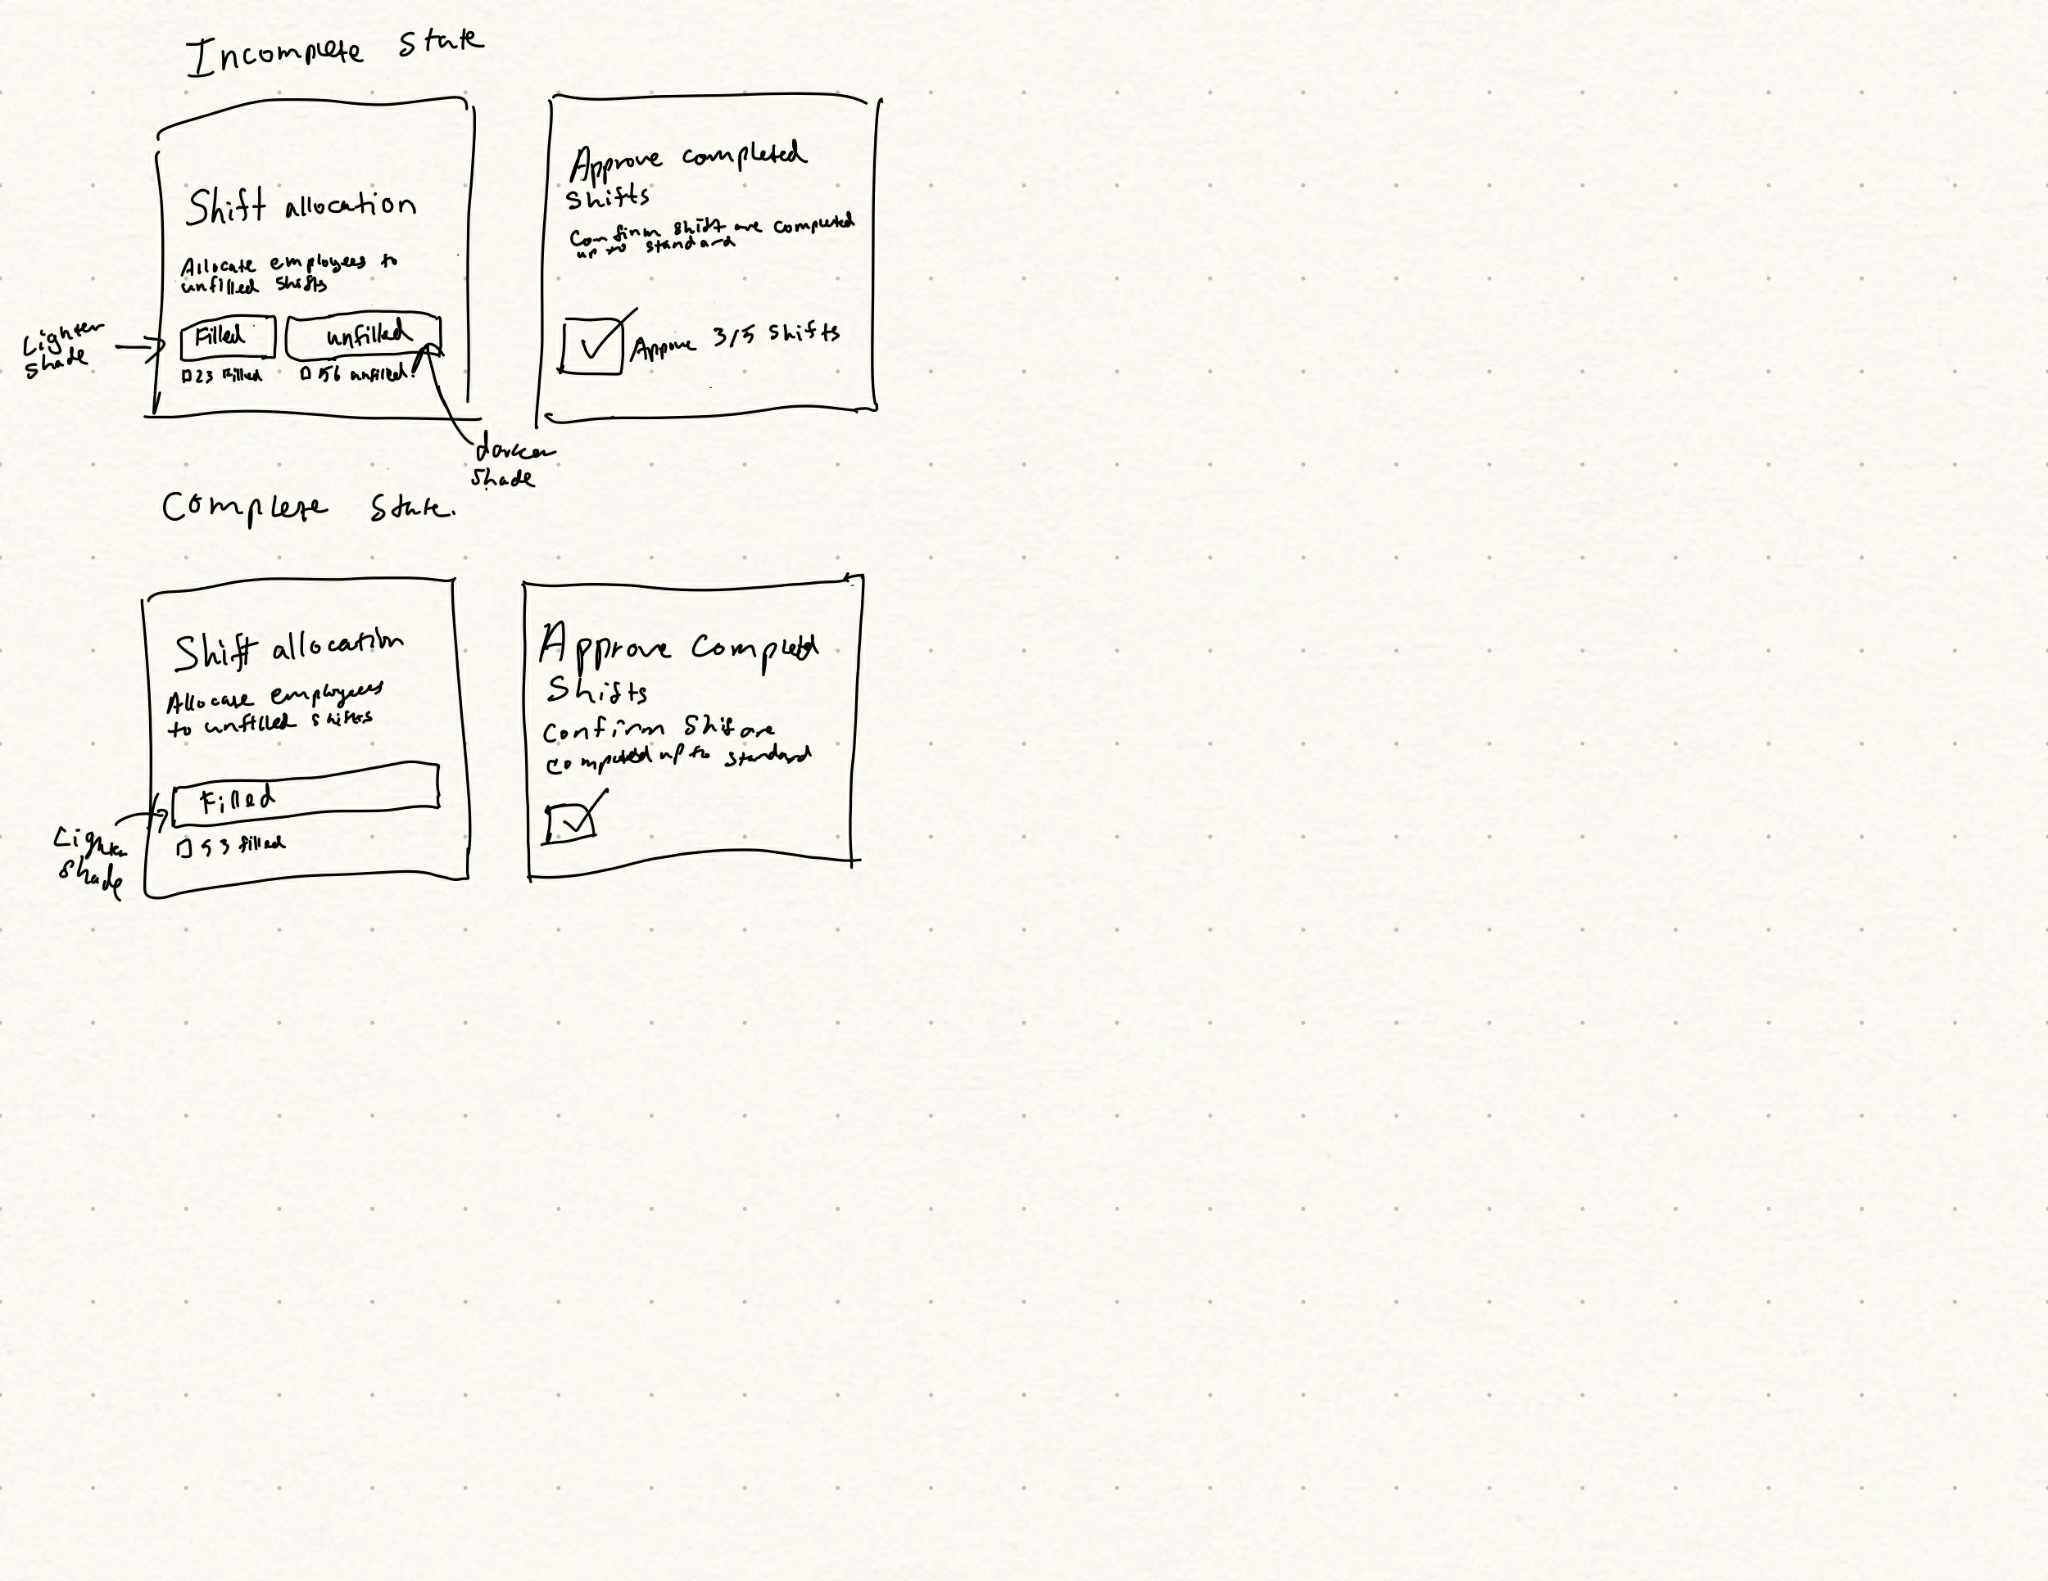 Incomplete state
Shift allocation
Allocate employees to
unfilled shifts
Lighter
shade
Filled
unfilled
23 filled
56 unfilled
darker
shade
Approve completed
Shifts
Confirm shift are completed
up to standard
Approve 3/5 shifts
Complete state.
Shift allocation
Allocate employees
to unfilled shifts
Filled
53 filled
Lighter
shade
Approve completed
Shifts
Confirm Shift are
completed up to standard